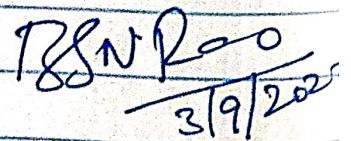 BSN Rao
3/9/202